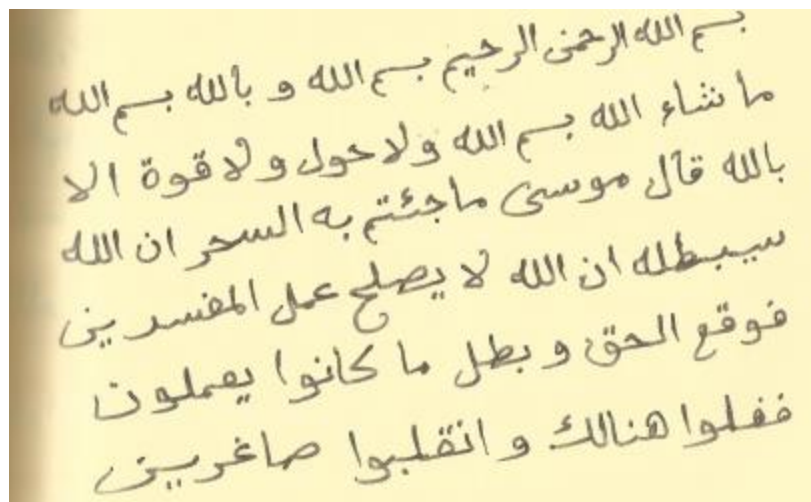 بسم الله الرحمن الرحيم بسم الله و بالله بسم الله
ما شاء الله بسم الله ولا حول ولا قوة الا
بالله قال موسى ما جئتم به السحر ان الله
سيبطله ان الله لا يصلح عمل المفسدين
فوقع الحق و بطل ما كانوا يعملون
فغلبوا هنالك و انقلبوا صاغرين